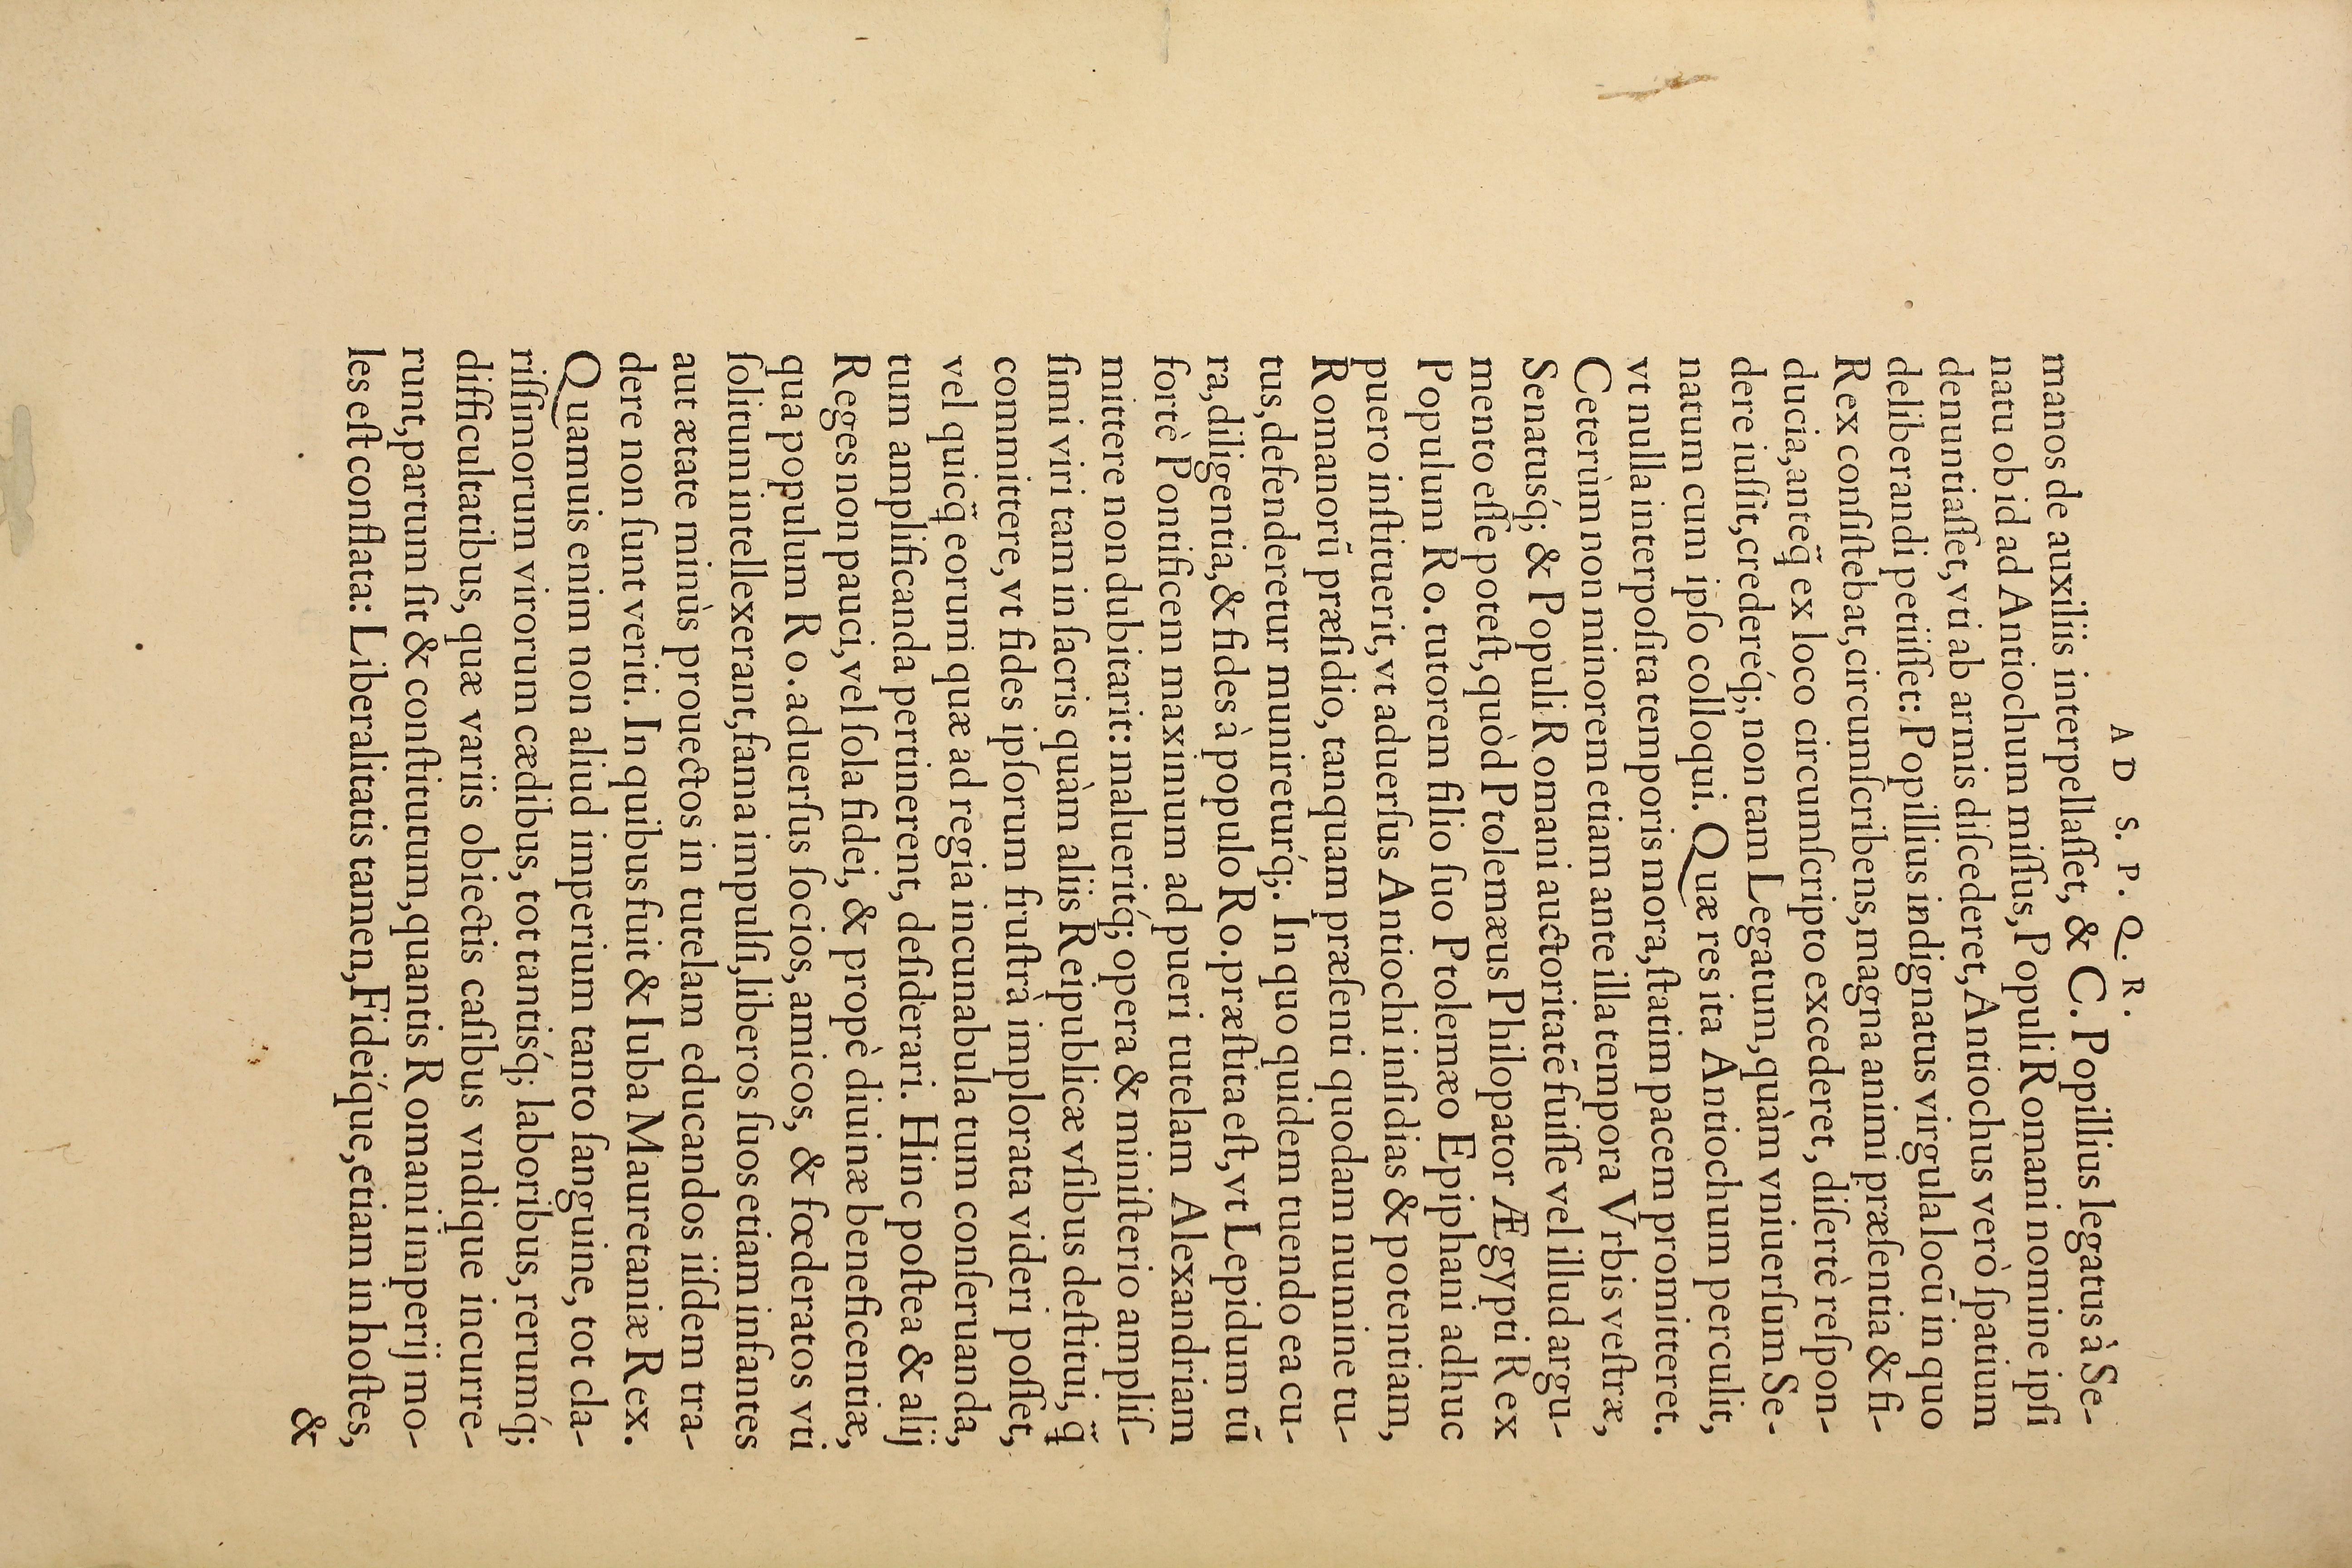 AD S. P. Q. R.
manos de auxiliis interpellaſſet, & C. Popillius legatus à Se-
natu ob id ad Antiochum miſſus, Populi Romani nomine ipſi
denuntiaſſet, vti ab armis diſcederet, Antiochus verò ſpatium
deliberandi petiiſſet: Popillius indignatus virgula locū in quo
Rex conſiſtebat, circumſcribens, magna animi præſentia & fi-
ducia, anteq̃ ex loco circumſcripto excederet, diſertè reſpon-
dere iuſſit, crederéq́; non tam Legatum, quàm vniuerſum Se-
natum cum ipſo colloqui. Quæ res ita Antiochum perculit,
vt nulla interpoſita temporis mora, ſtatim pacem promitteret.
Ceterùm non minorem etiam ante illa tempora Vrbis veſtræ,
Senatuśq; & Populi Romani auctoritatē fuiſſe vel illud argu-
mento eſſe poteſt, quòd Ptolemæus Philopator Ægypti Rex
Populum Ro. tutorem filio ſuo Ptolemæo Epiphani adhuc
puero inſtituerit, vt aduerſus Antiochi inſidias & potentiam,
Romanorū præſidio, tanquam præſenti quodam numine tu-
tus, defenderetur munireturq́;. In quo quidem tuendo ea cu-
ra, diligentia, & fides à populo Ro. præſtita eſt, vt Lepidum tū
fortè Pontificem maximum ad pueri tutelam Alexandriam
mittere non dubitarit: malueritq́; opera & miniſterio ampliſ-
ſimi viri tam in ſacris quàm aliis Reipublicæ vſibus deſtitui, q̃
committere, vt fides ipſorum fruſtrà implorata videri poſſet,
vel quicq̃ eorum quæ ad regia incunabula tum conſeruanda,
tum amplificanda pertinerent, deſiderari. Hinc poſtea & alij
Reges non pauci, vel ſola fidei, & propè diuinæ beneficentiæ,
qua populum Ro. aduerſus ſocios, amicos, & fœderatos vti
ſolitum intellexerant, fama impulſi, liberos ſuos etiam infantes
aut ætate minùs prouectos in tutelam educandos iiſdem tra-
dere non ſunt veriti. In quibus fuit & Iuba Mauretaniæ Rex.
Quamuis enim non aliud imperium tanto ſanguine, tot cla-
riſſimorum virorum cædibus, tot tantiśq; laboribus, rerumq́;
difficultatibus, quæ variis obiectis caſibus vndique incurre-
runt, partum ſit & conſtitutum, quantis Romani imperij mo-
les eſt conflata: Liberalitatis tamen, Fideíque, etiam in hoſtes,
&